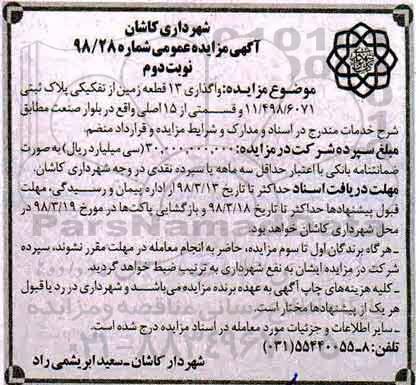 شهرداری کاشان
آگهی مزایده عمومی شماره ۹۸/۲۸
نوبت دوم
موضوع مزایده: واگذاری ۱۳ قطعه زمین از تفکیکی پلاک ثبتی
۱۱/۴۹۸/۶۰۷۱ و قسمتی از ۱۵ اصلی واقع در بلوار صنعت مطابق
شرح خدمات مندرج در اسناد و مدارک و شرایط مزایده و قرارداد منضم.
مبلغ سپرده شرکت در مزایده: ۳۰,۰۰۰,۰۰۰,۰۰۰ (سی میلیارد ریال) به صورت
ضمانتنامه بانکی با اعتبار حداقل سه ماهه یا سپرده نقدی در وجه شهرداری کاشان.
مهلت دریافت اسناد حداکثر تا تاریخ ۹۸/۳/۱۳ از اداره پیمان و رسیدگی، مهلت
قبول پیشنهادها حداکثر تا تاریخ ۹۸/۳/۱۸ و بازگشایی پاکت‌ها در مورخ ۹۸/۳/۱۹ در
محل شهرداری کاشان خواهد بود.
ـ هرگاه برندگان اول تا سوم مزایده، حاضر به انجام معامله در مهلت مقرر نشوند، سپرده
شرکت در مزایده ایشان به نفع شهرداری به ترتیب ضبط خواهد گردید.
ـ کلیه هزینه‌های چاپ آگهی به عهده برنده مزایده می‌باشد و شهرداری در رد یا قبول
هر یک از پیشنهادها مختار است.
ـ سایر اطلاعات و جزئیات مورد معامله در اسناد مزایده درج شده است.
تلفن: ۸-۵۵۴۴۰۰۵۵ (۰۳۱)
شهردار کاشان ـ سعید ابریشمی راد